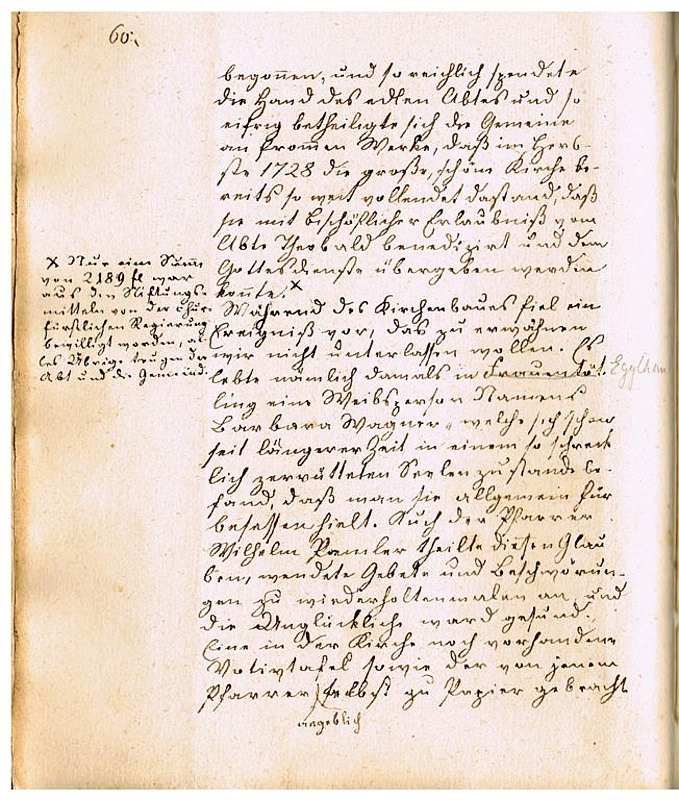 60.
begonnen, und so reichlich spendete
die Hand des edlen Abtes und so
eifrig betheiligte sich die Gemeine
an frommen Werke, daß im Herb-
ste 1728 die große, schöne Kirche be-
reits so weit vollendet dastand, daß
sie mit bischöflicher Erlaubniß vom
Abte Theobald benedizirt und dem
Gottesdienste übergeben werden
konnte. x
x Nur eine Summe
von 2189 fl war
aus den Stiftungs-
mitteln von der chur-
fürstlichen Regierung
bewilligt worden, al-
les Übrige trugen der
Abt und die Gemeinde.
Während des Kirchenbaues fiel ein
Ereigniß vor, das zu erwähnen
wir nicht unterlassen wollen. Es
lebte nämlich damals in Frauentöt-
ling eine Weibsperson Namens
Barbara Wagner, welche sich schon
seit längerer Zeit in einem so schreck
lich zerrütteten Seelenzustande be-
fand, daß man sie allgemein für
besessen hielt. Auch der Pfarrer
Wilhelm Pamler theilte diesen Glau
ben, wendete Gebete und Beschwörun-
gen zu wiederholtenmalen an, und
die Unglückliche ward gesund.
Eine in der Kirche noch vorhandene
Votivtafel sowie der von jenem
Pfarrer selbst zu Papier gebracht
angeblich